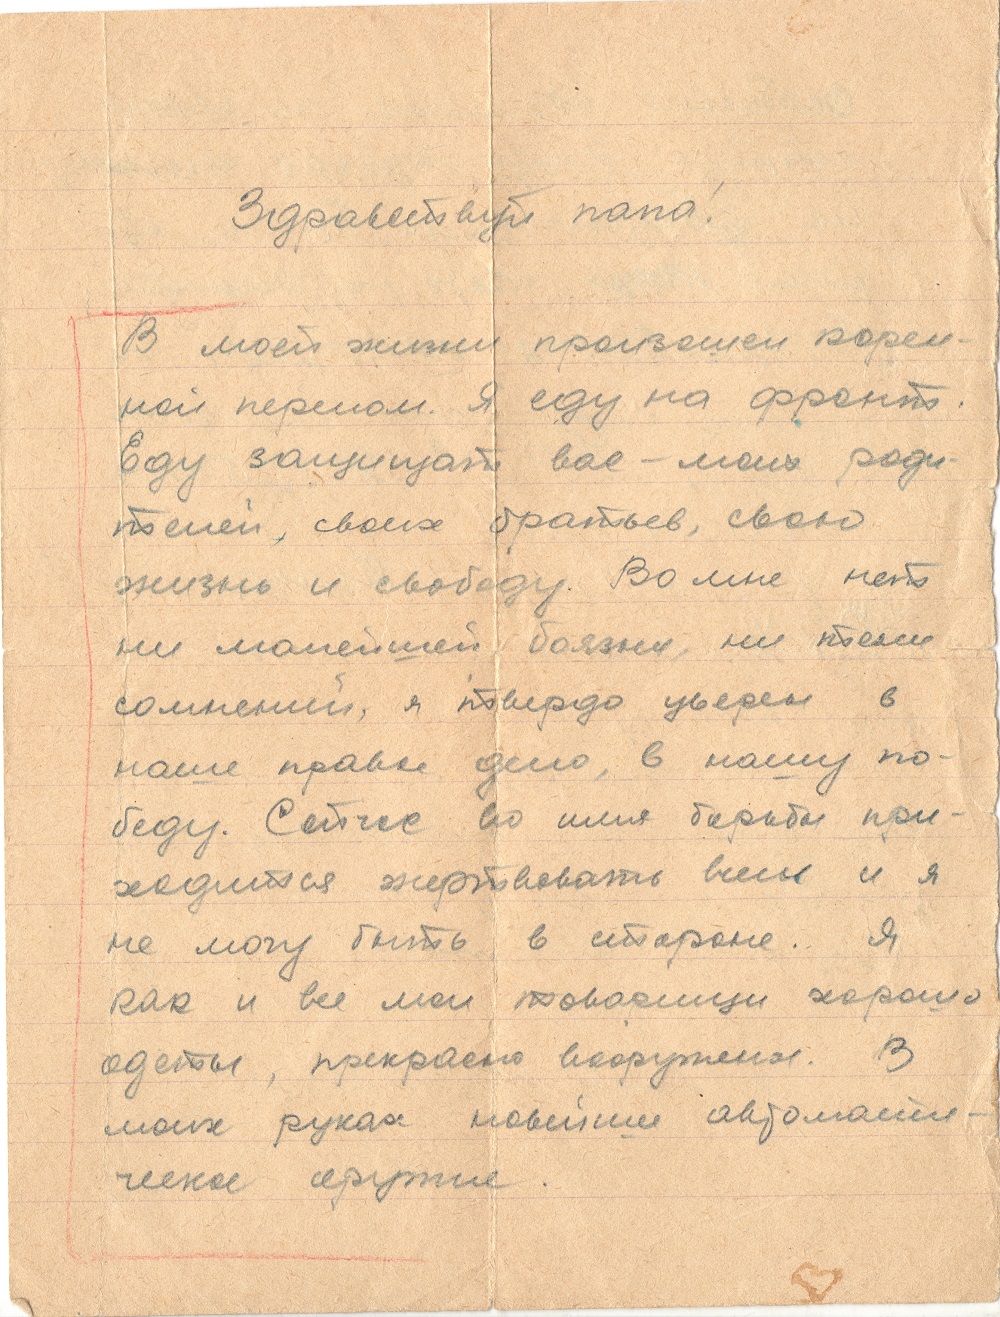 Здравствуй папа!
В моей жизни произошел корен-
ной перелом. Я еду на фронт.
Еду защищать вас – моих роди-
телей, своих братьев, свою
жизнь и свободу. Во мне нет
ни малейшей боязни, ни тени
сомнений, я твердо уверен в
наше правое дело, в нашу по-
беду. Сейчас во имя борьбы при-
ходится жертвовать всем и я
не могу быть в стороне. Я
как и все мои товарищи хорошо
одеты, прекрасно вооружены. В
моих руках новейшее автомати-
ческое оружие.